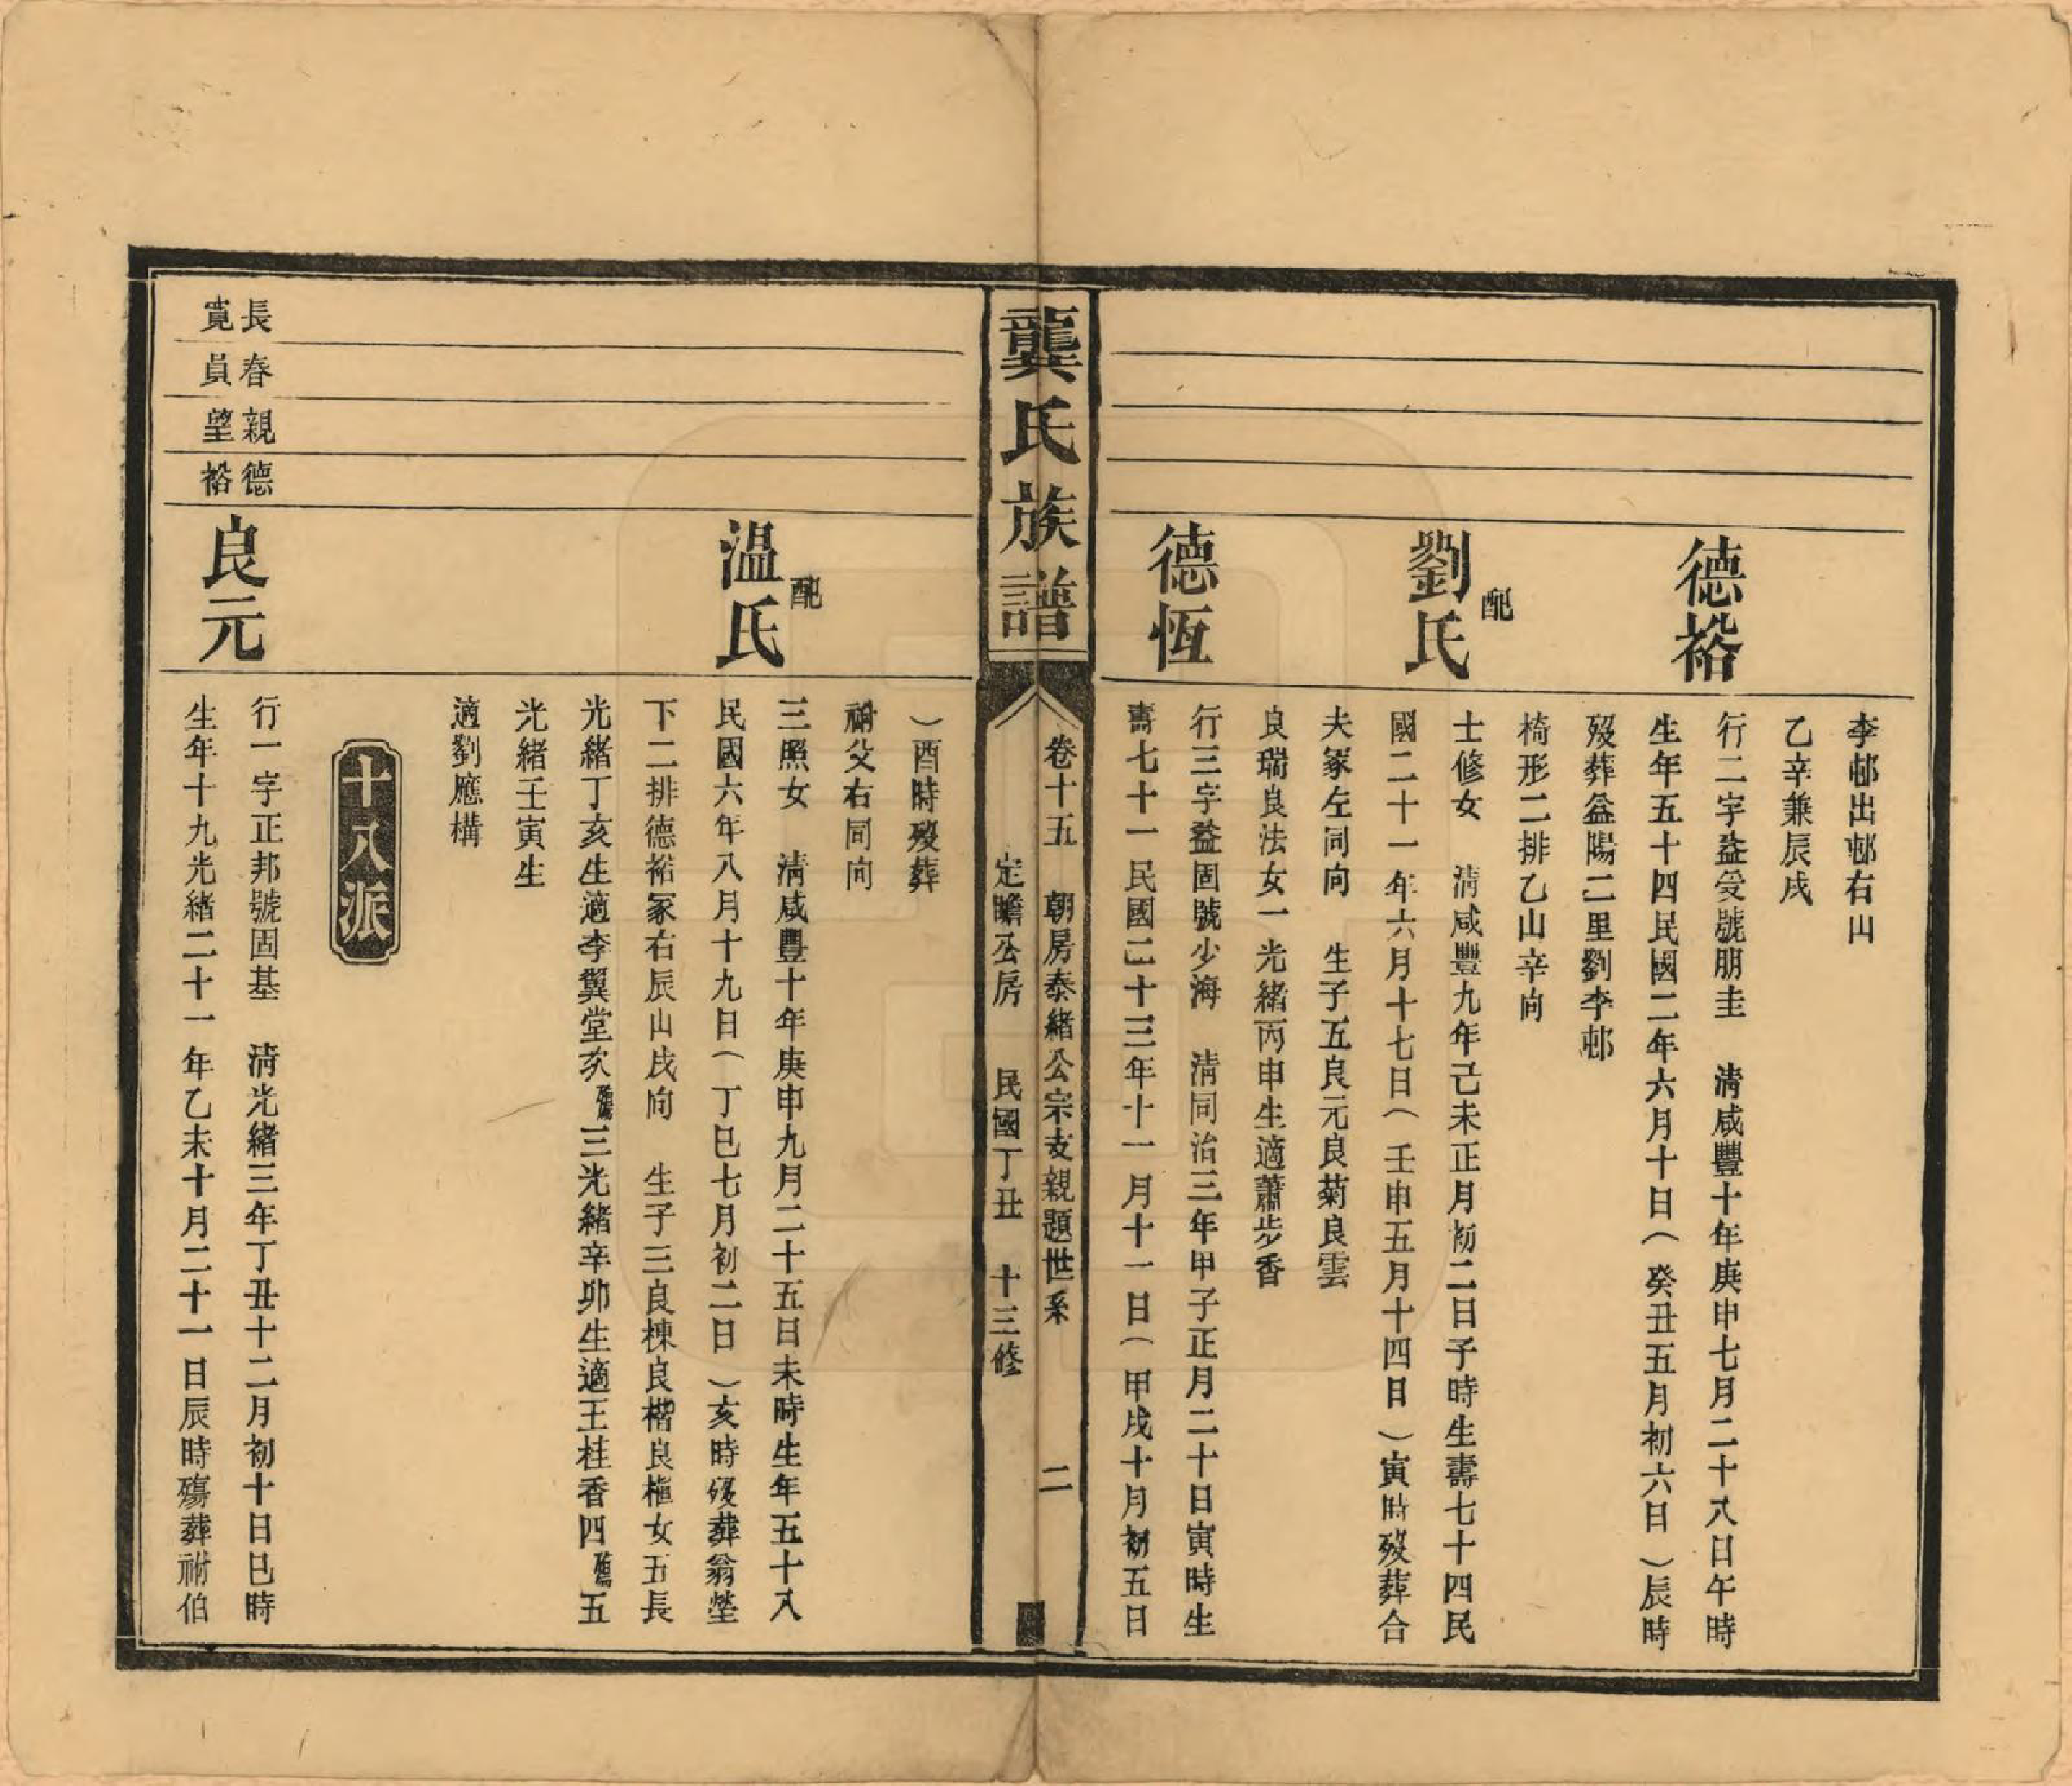 李邨出邨右山
乙辛兼辰戌
德裕
行二字益受號朋圭　清咸豐十年庚申七月二十八日午時
生年五十四民國二年六月十日（癸丑五月初六日）辰時
歿葬益陽二里劉李邨
椅形二排乙山辛向
配
劉氏
士修女　清咸豐九年己未正月初二日子時生壽七十四民
國二十一年六月十七日（壬申五月十四日）寅時歿葬合
夫冢左同向　生子五良元良菊良雲
良瑞良法女一光緒丙申生適蕭步香
德恆
行三字益固號少海　清同治三年甲子正月二十日寅時生
壽七十一民國二十三年十一月十一日（甲戌十月初五日
龔氏族譜
卷十五　朝房泰緒公宗支親題世系　二
定瞻公房　民國丁丑　十三修
）酉時歿葬
祔父右同向
配
温氏
三照女　清咸豐十年庚申九月二十五日未時生年五十八
民國六年八月十九日（丁巳七月初二日）亥時歿葬翁塋
下二排德裕冢右辰山戌向　生子三良棟良楷良權女五長
光緒丁亥生適李翼堂次殤三光緒辛卯生適王桂香四殤五
光緒壬寅生
適劉應構
十八派
長春親德
寬員望裕
良元
行一字正邦號固基　清光緒三年丁丑十二月初十日巳時
生年十九光緒二十一年乙未十月二十一日辰時殤葬祔伯